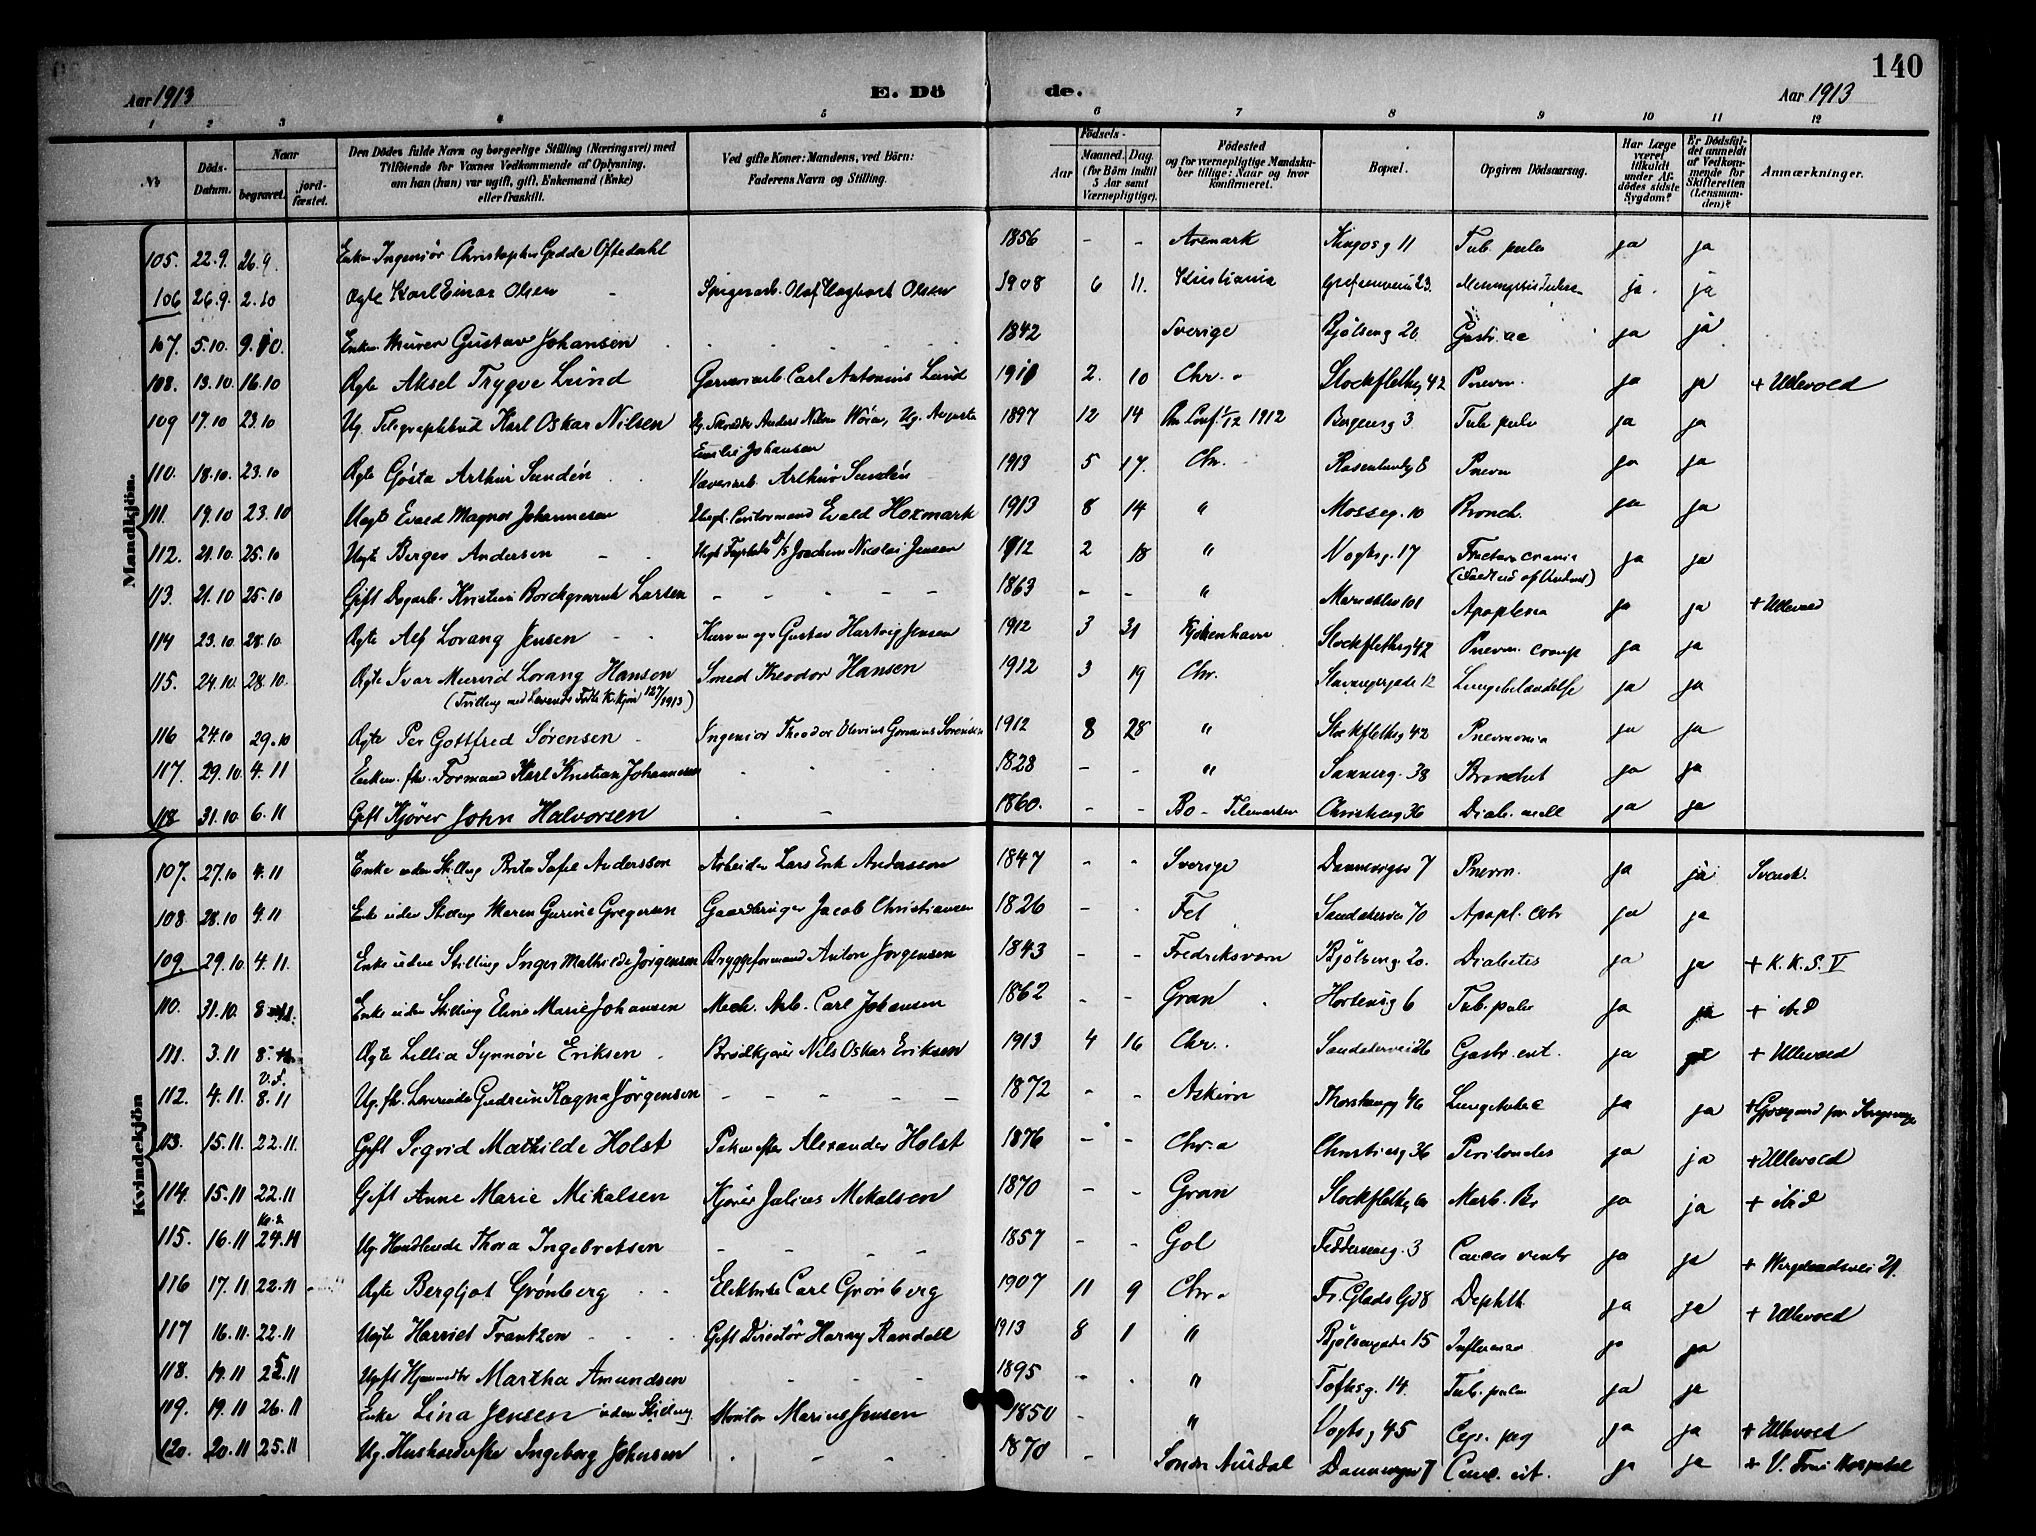 140
Aar 1913
E. Dö
de.
Aar 1913
1 2 3 4 5 6 7 8 9 10 11 12
No
Döds-Datum.
Naar
begravet.
jord-fæstet.
Den Dödes fulde Navn og borgerlige Stilling (Næringsvei) med
Tilföiende for Voxnes Vedkommende af Oplysning,
om han (hun) var ugift, gift, Enkemand (Enke)
eller fraskilt.
Ved gifte Koner: Mandens, ved Börn:
Faderens Navn og Stilling.
Födsels-
Aar
Maaned. Dag.
(for Börn indtil
5 Aar samt
Værnepligtige).
Födested
og for værnepligtige Mandska-
ber tillige: Naar og hvor
konfirmeret.
Bopæl.
Opgiven Dödsaarsag.
Har Læge
været
tilkaldt
under Af-
dödes sidste
Sygdom?
Er Dödsfal-
det anmeldt
af Vedkom-
mende for
Skifteretten
(Lensman-
den)?
Anmærkninger.
Mandkjön.
105. 22.9. 26.9. Enkem. Ingeniör Christopher Gedde Oftedahl 1856 - - Aremark Kingosg 11 Tub. pulm ja ja
106 26.9. 2.10 Ægte Karl Einar Olsen - Spigerarb. Olaf Hagbart Olsen 1908 6 11. Kristiania Grefsenveien 23. ja. ja
107. 5.10. 9.10. Enkem. Murer Gustav Johansen 1842 Sverige Bjölseng 20 Gastr. ac ja ja
108. 13.10 16.10 Ægte Aksel Trygve Lund Garveriarb. Carl Antonius Lund 1911 2. 10 Chr. a Stockflethsg 42 Pnevm. ja ja + Ullevold
109 17.10 23.10 Ug. Telegraphbud Karl Oskar Nilsen Ug. Skrædder Anders Nilsen Wöia, Ug. Augusta
Emilie Johansen 1897 12 14 Conf. 1/12 1912 Bergensg 3 Tub. pulm ja ja
110. 18.10. 23.10 Ægte Gösta Arthur Sundén Væveriarb. Arthur Sundén 1913 5 17. Chr. Rosenlundg 8 Pnevm ja ja
111. 19.10 23.10 Uægte Evald Magnar Johannesen Ungk. Contormand Evald Hoxmark 1913 8 14 " Mosseg. 10 Bronch. ja ja
112. 21.10. 25.10 Uægte Berger Andersen - - Joachim Nicolai Jensen 1912 2 18 " Vogtsg. 17 Fractura cranii ja ja
113. 21.10 25.10 Gift Dagarb. Kristian Borchgrevink Larsen - - - - - 1863 - - " Maridalsv 101 Apoplexia ja ja + Ullevold
114 23.10 28.10. Ægte Alf Lorang Jensen - - Kurvmager Gustav Hartvig Jensen 1912 3 31 Kjöbenhavn Stockflethsg 42 Pnevm. croup ja ja
115. 24.10. 28.10. Ægte Ivar Murvid Lorang Hansen Smed Theodor Hansen 1912 3 19 Chr. Stavangergade 12 Lungebetændelse ja ja
(Tvilling med Levende Födte K. Kjön 127/1913)
116 24.10 29.10 Ægte Per Gottfred Sörensen - Ingeniör Theodor Olevius Sörensen 1912 8 28 " Stockflethsg 42 Pnevmonia ja ja
117. 29.10. 4.11 Enkem. fhv. Formand Karl Kristian Johannesen 1828 - - " Sannerg. 38 Bronchit ja ja
118 31.10 6.11 Gift Kjörer John Halvorsen - 1860. - - Bo - Telemarken Christiesg 36 Diab. mell ja ja
Kvindekjön
107. 27.10 4.11 Enke uden Stilling Brita Sofie Andersson Arbeider Lars Erik Andersson 1847 - - Sverige Dannevigsv 7 Pnevm. ja ja Svensk.
108 28.10 4.11 Enke uden Stilling Maren Gurine Gregersen Gaardbruger Jacob Christiansen 1826 - - Fet Sandakerveien 70 Apopl. cebr ja ja
109. 29.10 4.11. Enke uden Stilling Inger Mathilde Jörgensen Bryggeformand Anton Jörgensen 1843 - - Fredriksværn Bjölseng 20. Diabetes ja ja + K. K. S. V
110. 31.10. 8.11. Enke uden Stilling Eline Marie Johansen Mech. Arb. Carl Johansen 1862 - - Gran Hortensg 6 Tub. pulm ja ja + ibid
111. 3.11 8. Ægte Lillia Synnöve Eriksen Brödkjörer Nils Oskar Eriksen 1913 4 16 Chr. Sandakerveien 26 Gastr. ent. ja ja + Ullevold
V.F.
112. 4.11. 8.11 Ug. fh. Lærerinde Gudrun Ragna Jörgensen - - - - - 1872 - - Askim Thorshaugg 46 ja ja
113. 15.11. 22.11. Gift Sigrid Mathilde Holst Alexander Holst 1876 - - Chr. a Christiesg 36 Peritonitis ja ja + Ullevold
114. 15.11 22.11 Gift Anne Marie Mikalsen Kjörer Julius Mikalsen 1870 - - Gran Stockflethsg Morb. Br ja ja + ibid
115. 16.11 24.11 Ug. Handlende Thora Ingebretsen - - - - 1857 - - Gol Feddersensg. 3 Cancer ventr ja ja + Wergelandsvei 21.
116 17.11 22.11 Ægte Bergljot Grönberg Elektriker Carl Grönberg 1907 11 9 Chr. a Fr. Glads Gd 8 Diphth ja ja + Ullevold
117 16.11. 22.11 Uægte Harriet Frantzen Gift Direktör Harry Randall 1913 8 1 " Bjölsengade 15 Influensa ja ja
118. 19.11 25.11 Martha Amundsen 1895 - - " Toftesg. 14. Tub. pulm ja ja
119. 19.11 26.11 Enke Lina Jensen uden Stilling Maler Marius Jensen 1850 - " Vogtsg 45 ja ja + Ullevold
120. 20.11 25.11 Ug. Husholderske Ingeborg Johnsen 1870 - Söndre Aurdal Dannevigsv 7 Canc. ut. ja ja